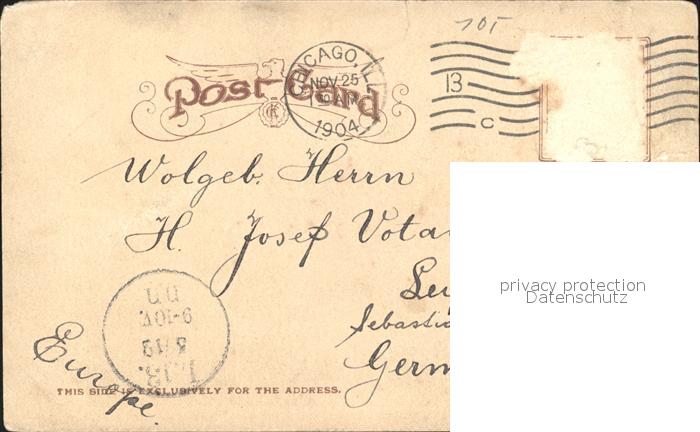 705
Post Card
CHICAGO, ILL.
NOV 25
1904
13
C
Wolgeb. Herrn
H. Josef Vota
Le
Sebastia
Germ
Europe.
L. 13.
5/12
9-10V.
THIS SIDE IS EXCLUSIVELY FOR THE ADDRESS.
privacy protection
Datenschutz